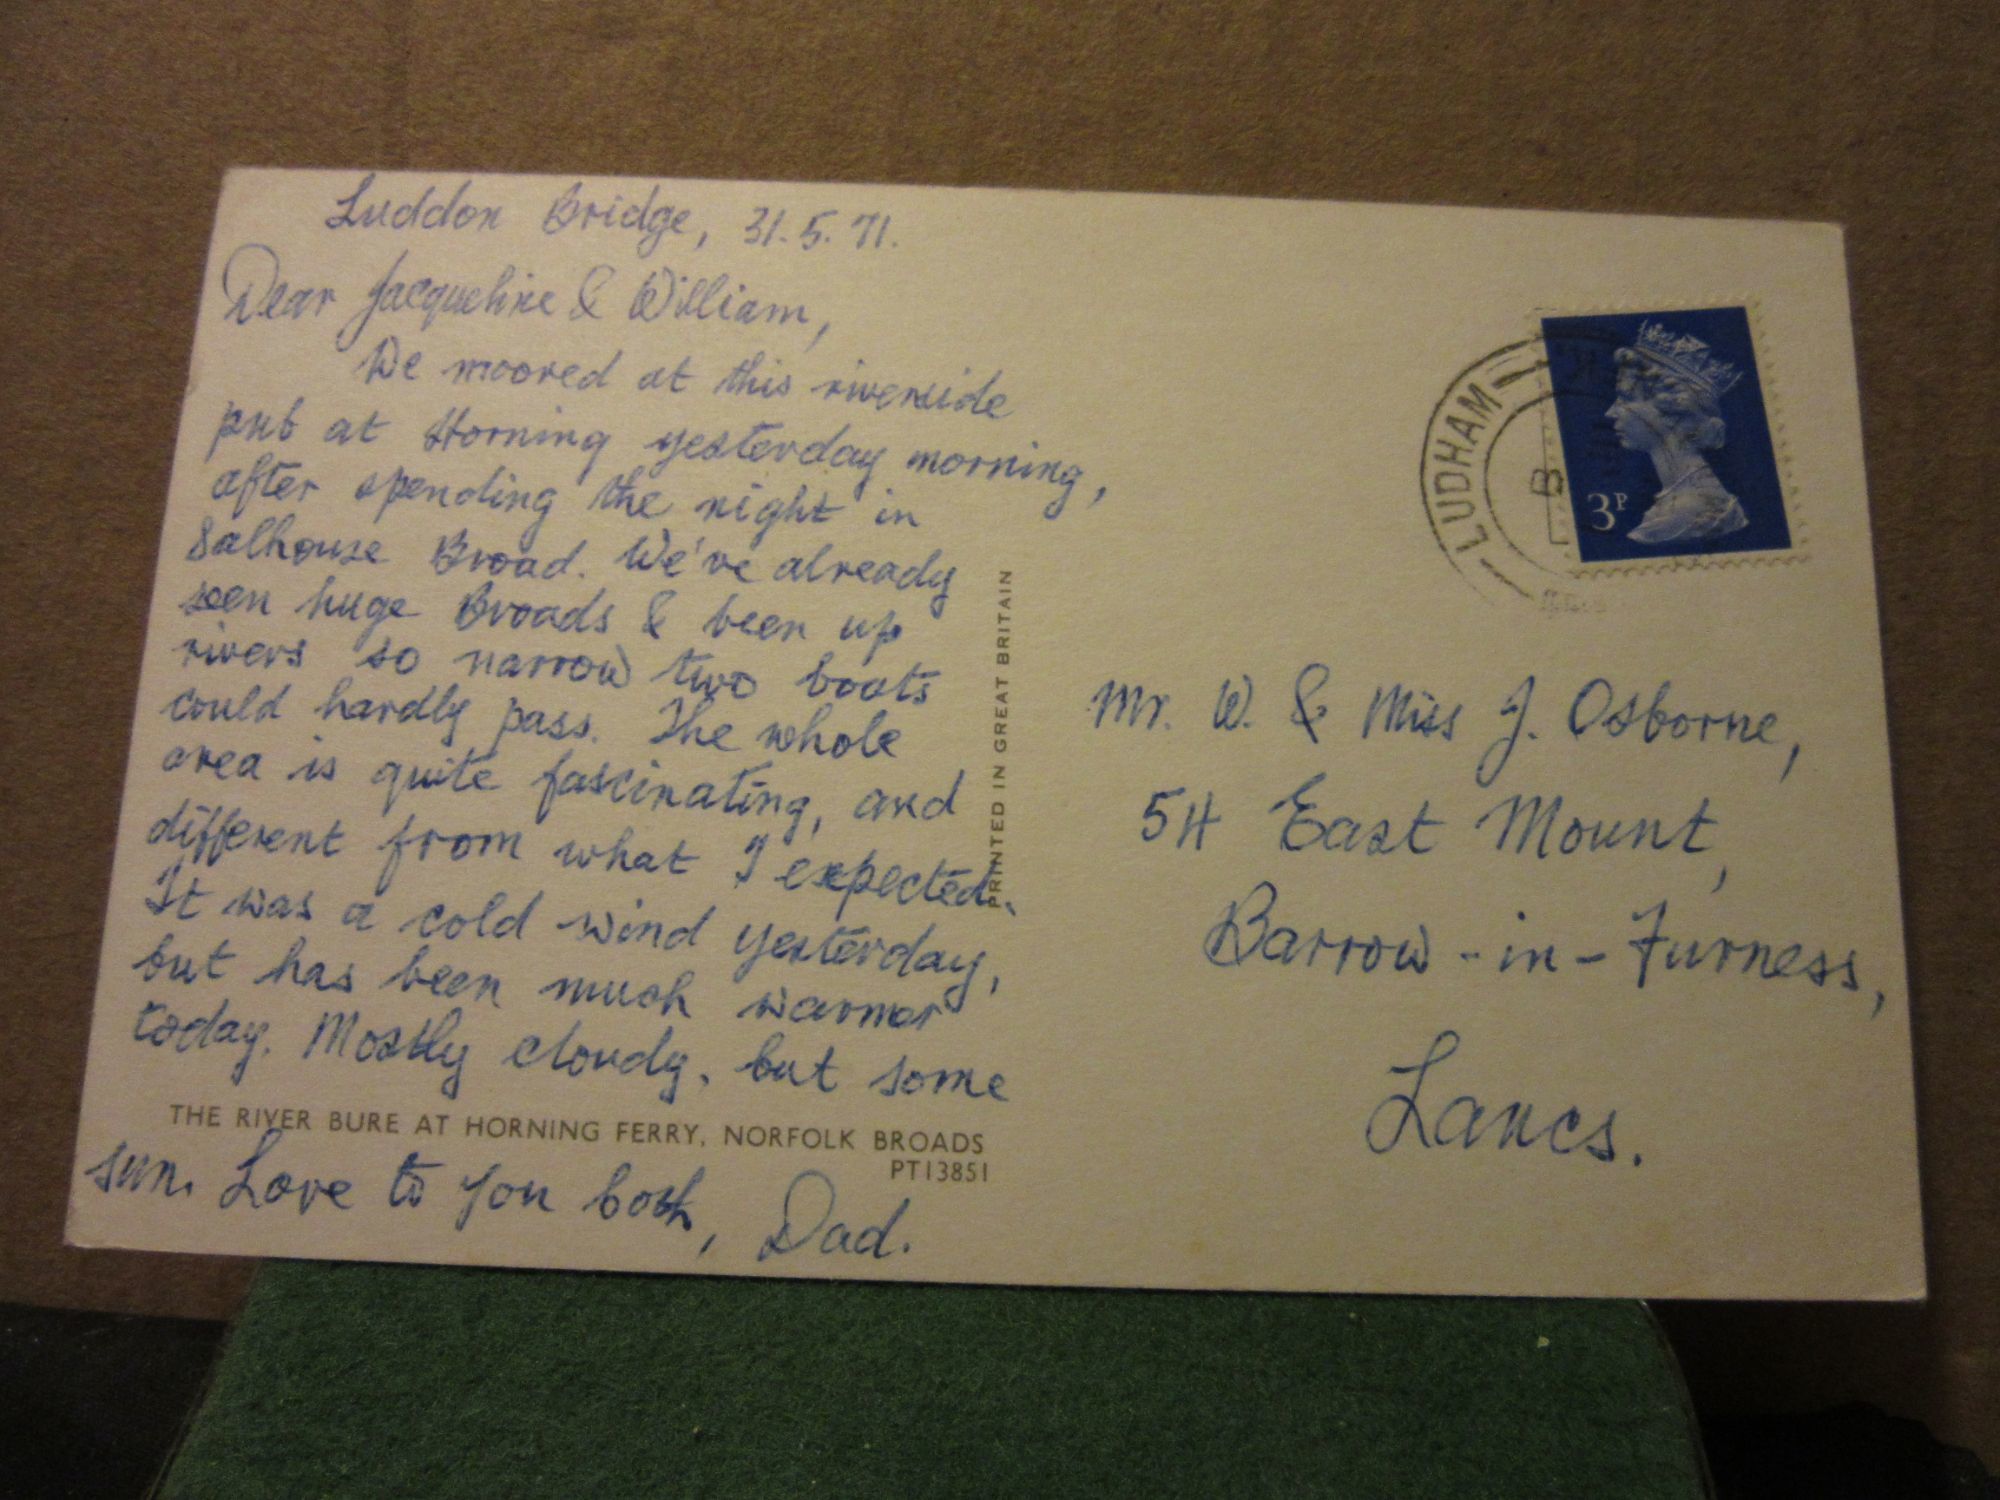 Luddon Bridge, 31.5.71.
Dear Jacqueline & William,
We moored at this riverside
pub at Horning yesterday morning,
after spending the night in
Salhouse Broad. We've already
seen huge Broads & been up
rivers so narrow two boats
could hardly pass. The whole
area is quite fascinating, and
different from what I expected.
It was a cold wind yesterday,
but has been much warmer
today. Mostly cloudy, but some
THE RIVER BURE AT HORNING FERRY, NORFOLK BROADS
PT13851
sun. Love to you both, Dad.
PRINTED IN GREAT BRITAIN
LUDHAM
3P
Mr. W. & Miss J. Osborne,
54 East Mount,
Barrow-in-Furness,
Lancs.